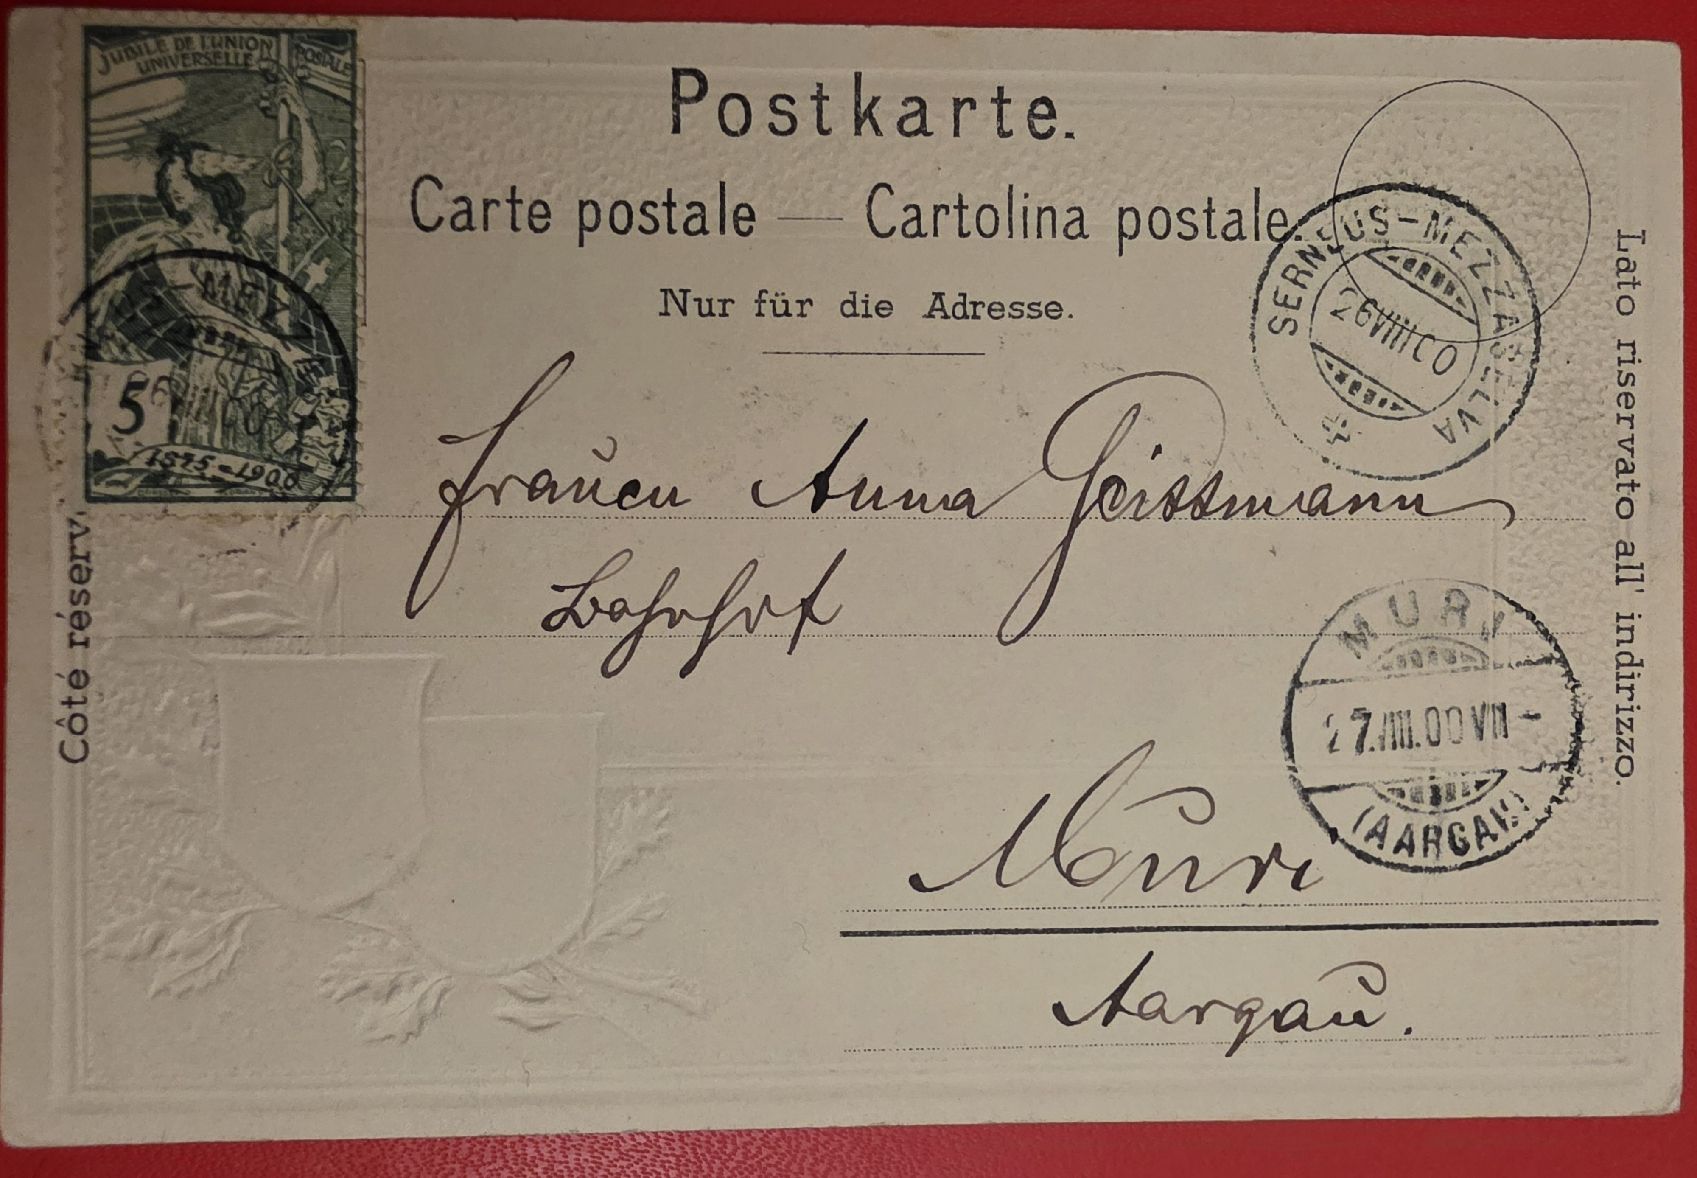 JUBILÉ DE L'UNION POSTALE
UNIVERSELLE
5
1875-1900
Postkarte.
Carte postale — Cartolina postale.
Nur für die Adresse.
Côté réserv
Lato riservato all' indirizzo.
SERNEUS-MEZZASELVA
26 VIII 00
Frauen Anna Geissmann
Bahnhof
MURI
27.VIII.00 VII-
(AARGAU)
Muri
Aargau.